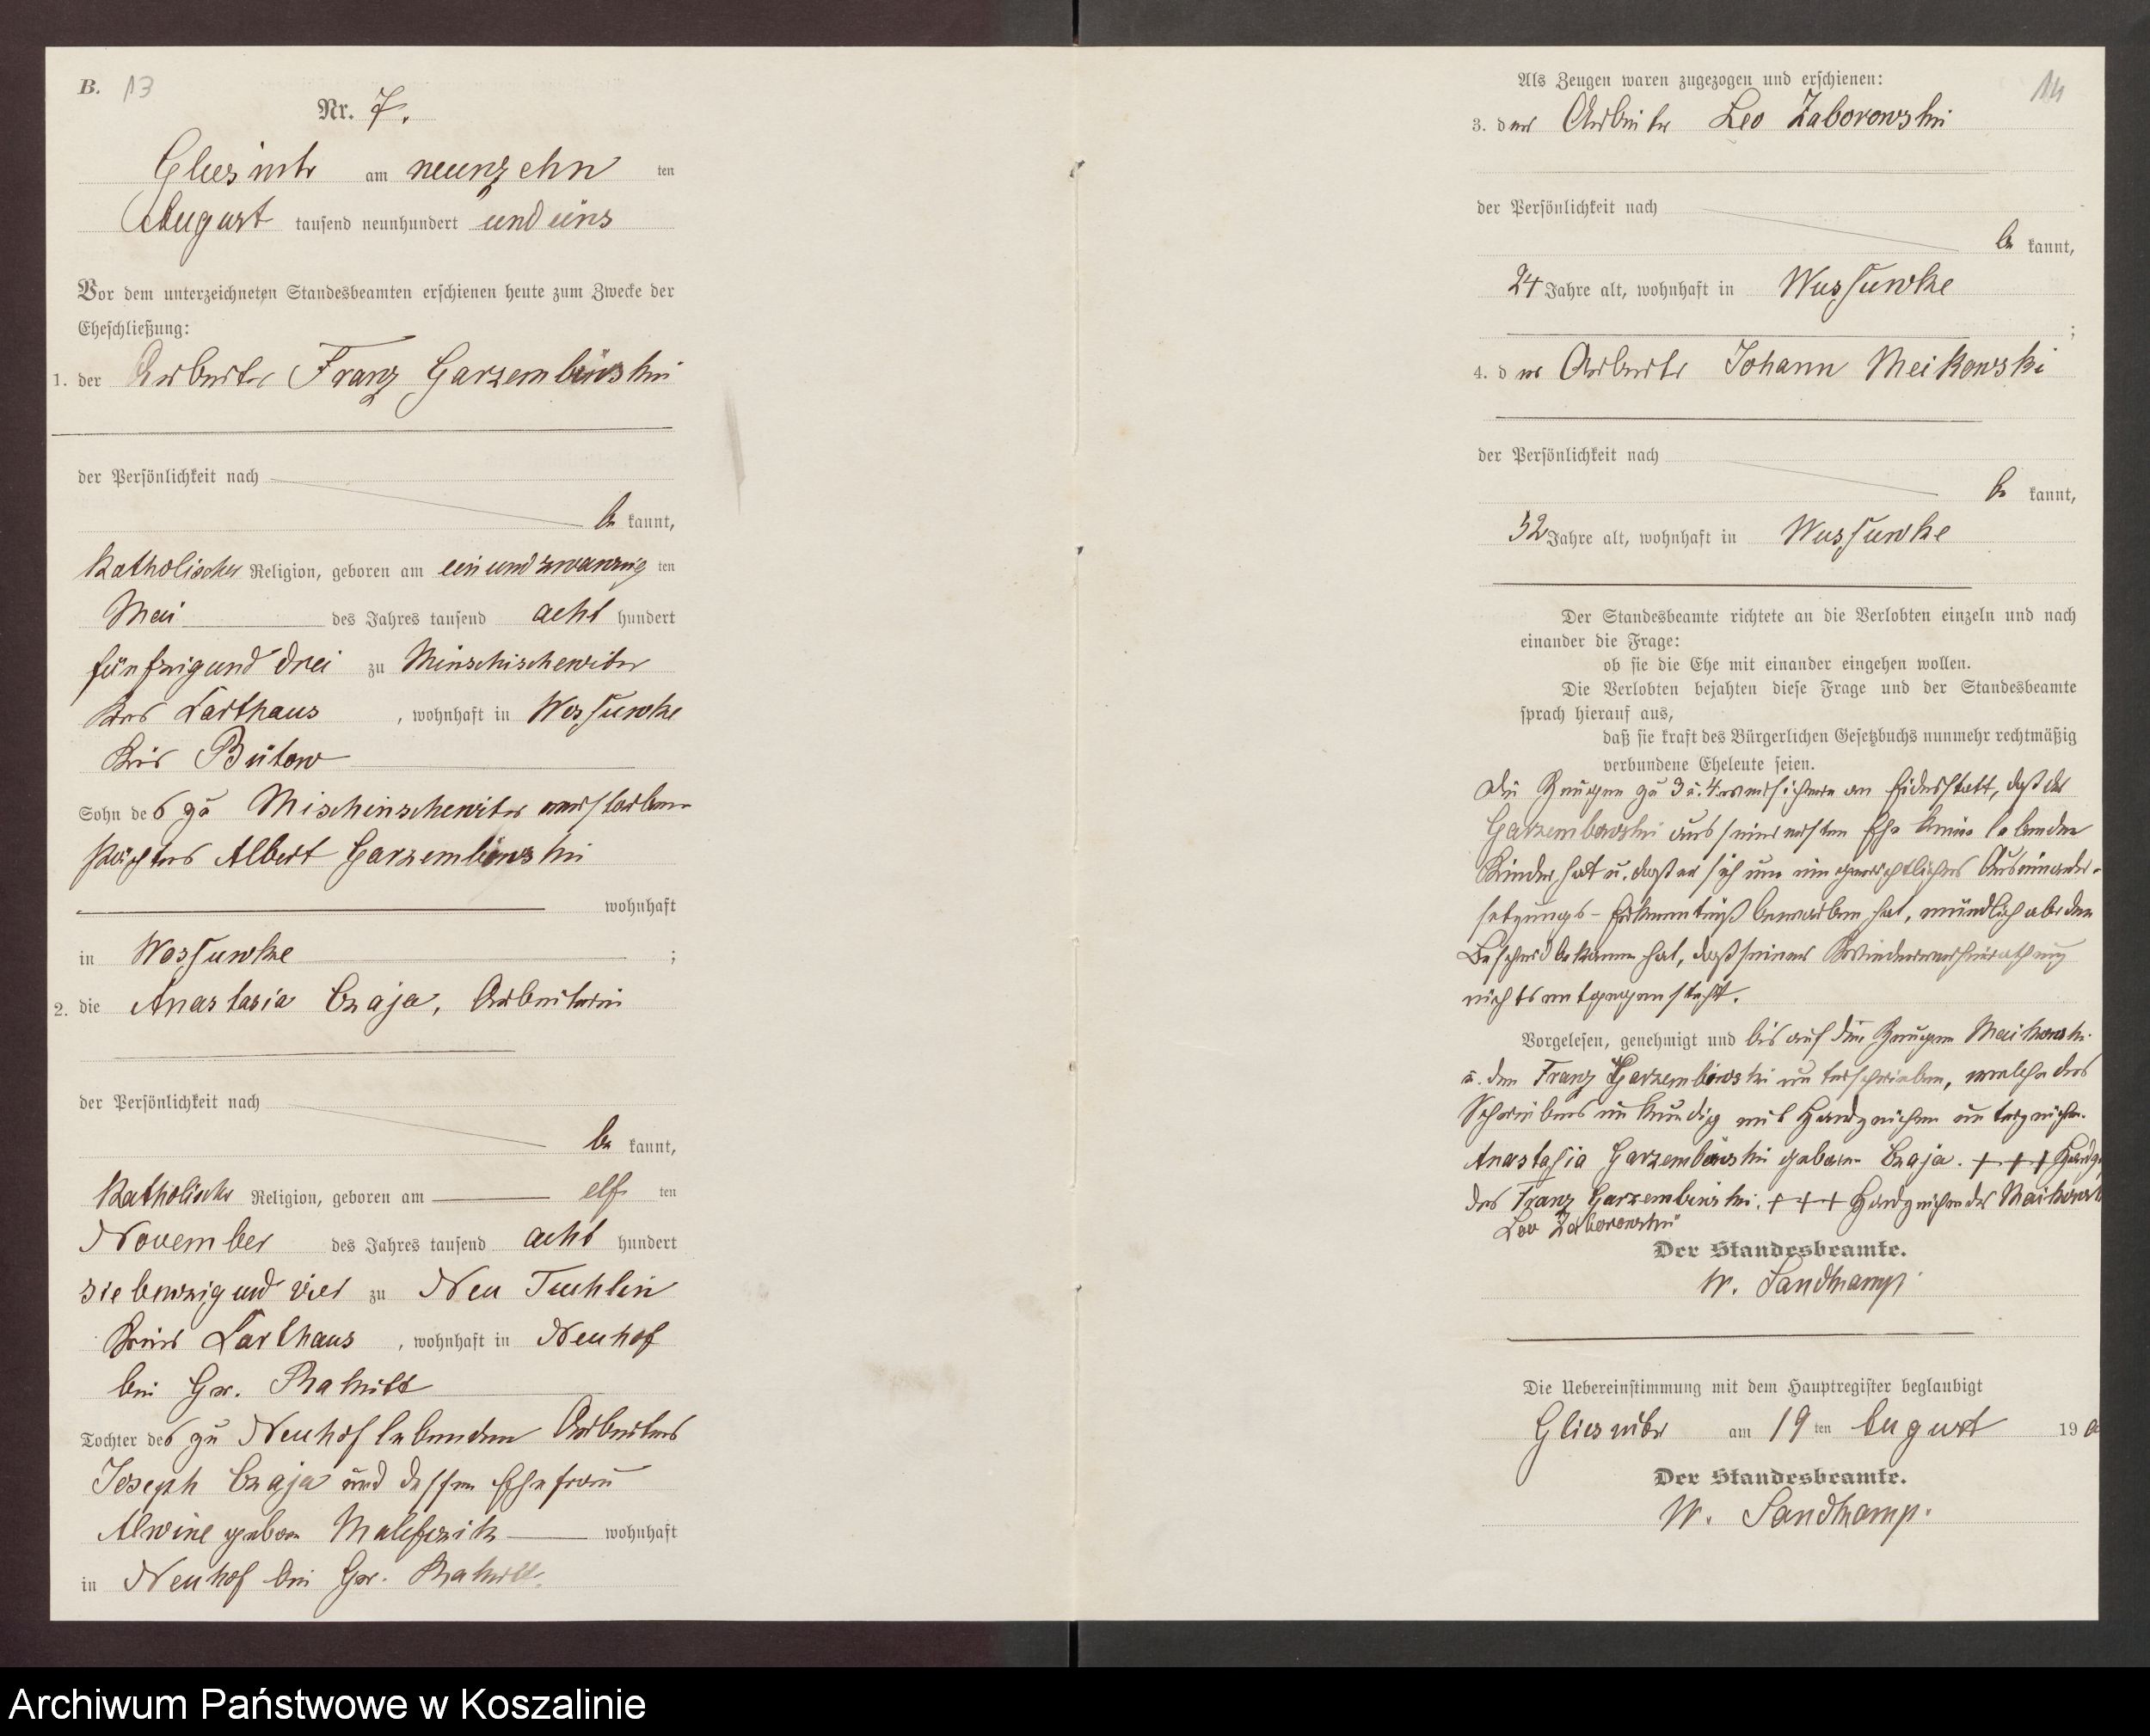 B. 13
Nr. 7.
Gliesnitz am neunzehn ten
August tausend neunhundert und eins
Vor dem unterzeichneten Standesbeamten erschienen heute zum Zwecke der
Eheschließung:
1. der Arbeiter Franz Garzembinski
der Persönlichkeit nach
be kannt,
katholischer Religion, geboren am ein und zwanzig ten
Mai des Jahres tausend acht hundert
fünfzig und drei zu
Kreis Carthaus, wohnhaft in Wossunke
Kreis Bütow
Sohn des zu verstorbenen
Albert Garzembinski
wohnhaft
in Wossunke ;
2. die Anastasia Czaja, Arbeiterin
der Persönlichkeit nach
be kannt,
katholischer Religion, geboren am elf ten
November des Jahres tausend acht hundert
siebenzig und vier zu Neu Tuchlin
Kreis Carthaus, wohnhaft in Neuhof
bei Gr. Rakitt
Tochter des zu Neuhof lebenden Arbeiters
Joseph Czaja und dessen Ehefrau
Alwine geboren wohnhaft
in Neuhof bei Gr. Rakitt.
14
Als Zeugen waren zugezogen und erschienen:
3. der Arbeiter Leo Zaborowski
der Persönlichkeit nach
be kannt,
24 Jahre alt, wohnhaft in Wussunke
;
4. der Arbeiter Johann Meikowski
der Persönlichkeit nach
be kannt,
52 Jahre alt, wohnhaft in Wussunke
Der Standesbeamte richtete an die Verlobten einzeln und nach
einander die Frage:
ob sie die Ehe mit einander eingehen wollen.
Die Verlobten bejahten diese Frage und der Standesbeamte
sprach hierauf aus,
daß sie kraft des Bürgerlichen Gesetzbuchs nunmehr rechtmäßig
verbundene Eheleute seien.
Die Zeugen zu 3 u. 4 versichern an Eidesstatt, daß der
Garzembinski aus seiner ersten Ehe keine lebenden
Kinder hat u. daß er sich um ein gerichtliches Auseinander-
setzungs-Erkenntniß beworben hat, mündlich aber den
Bescheid bekommen hat, daß seiner Wiederverheirathung
nichts entgegensteht.
Vorgelesen, genehmigt und bis auf den Zeugen Meikowski
u. den Franz Garzembinski unterschrieben, welche des
Schreibens unkundig mit Handzeichen unterzeichn.
Anastasia Garzembinski geboren Czaja. +++ Handz
des Franz Garzembinski. +++ Handzeichen des Meikowsk
Leo Zaborowski
Der Standesbeamte.
W. Sandkamp.
Die Uebereinstimmung mit dem Hauptregister beglaubigt
Gliesnitz am 19 ten August 190
Der Standesbeamte.
W. Sandkamp.
Archiwum Państwowe w Koszalinie